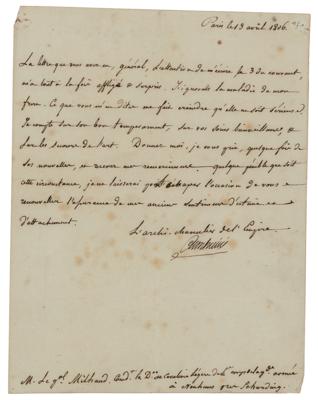 Paris le 13 avril 1806.
La lettre que vous avez eu, général, l'attention de m'écrire le 3 du courant,
m'a tout à la fois affligé et surpris. J'ignorais la maladie de mon
frere. Ce que vous m'en dites me fait craindre qu'elle ne soit sérieuse.
Je compte sur son bon tempérament, sur vos soins bienveillans, et
sur les secours de l'art. Donnez moi, je vous prie, quelque fois de
ses nouvelles, et recevez mes remerciemens. quelque pénible que soit
cette circonstance, je ne laisserai pas échaper l'occasion de vous
renouveller l'assurance de mon ancien sentiment d'estime et
d'attachement.
L'archi-chancelier de l'Empire
Cambacérès
M. Le gal. Milhaud, Comdt. la Don. de Cavalerie légère du 4e. corps de la gde. armée
à par Scharding.